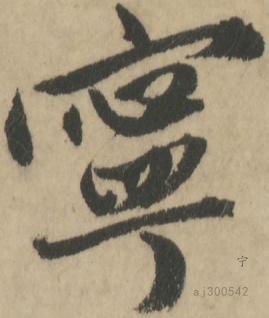 寧
宁
aj300542